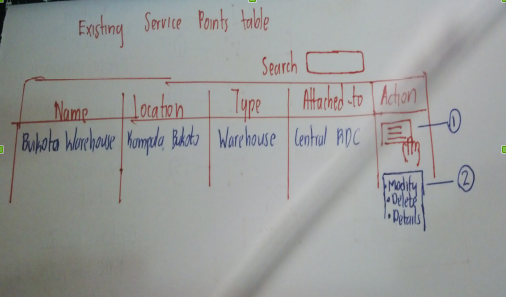 Existing Service Points table
Search
Name Location Type Attached-to Action
Bukoto Warehouse Kampala, Bukoto Warehouse Central RDC
1
• Modify
• Delete
• Details
2